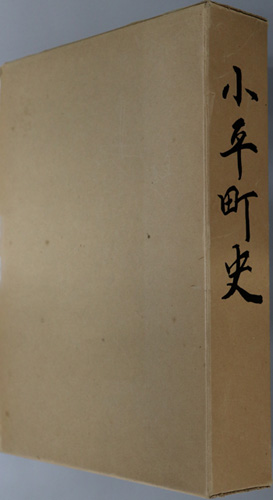 小平町史